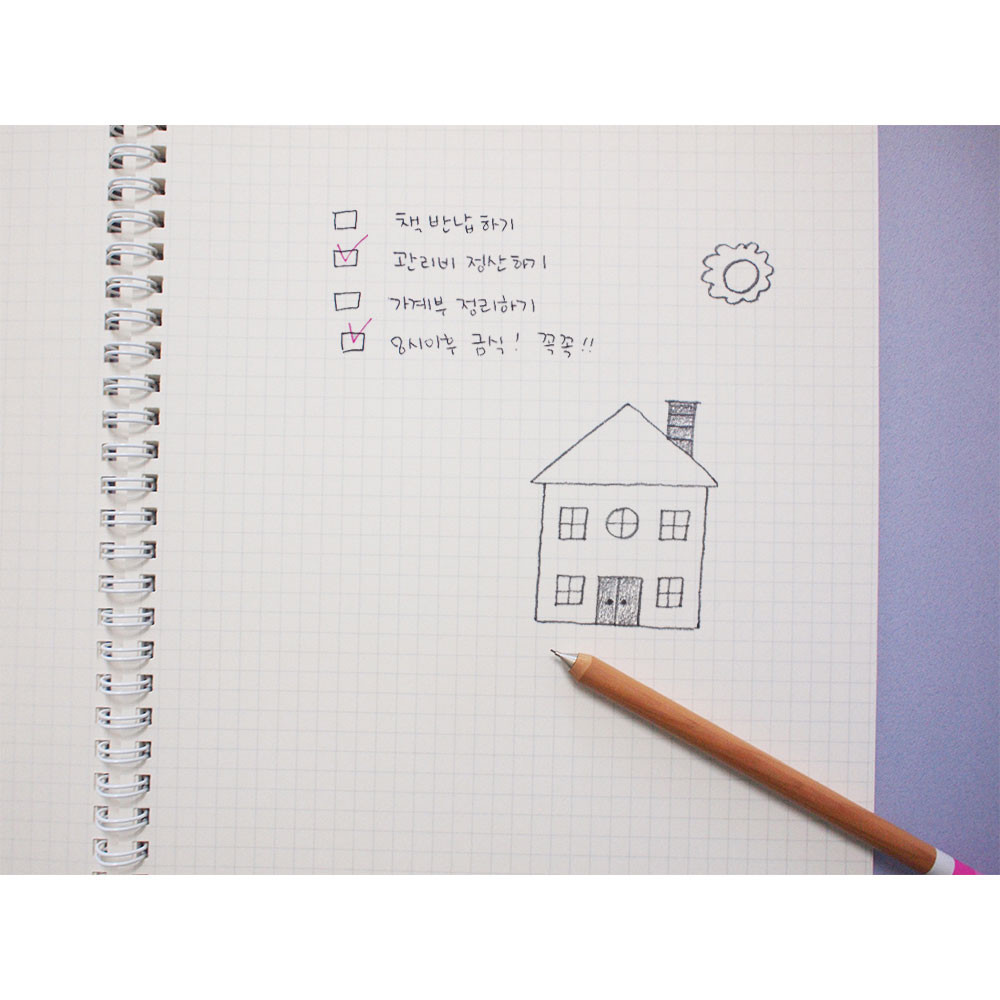 책 반납하기
관리비 정산하기
가계부 정리하기
8시이후 금식! 꼭꼭!!